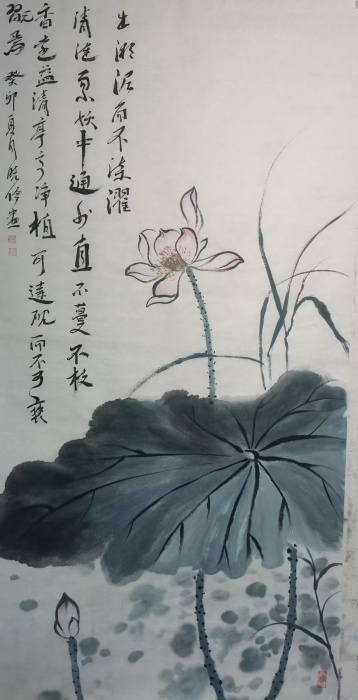 出淤泥而不染濯
清涟而不妖中通外直不蔓不枝
香远益清亭亭净植可远观而不可亵
翫焉 癸卯夏月